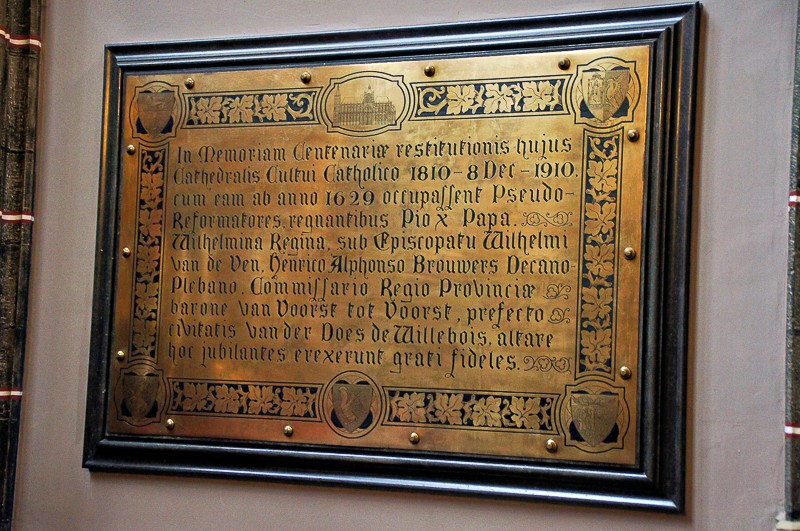 In Memoriam Centenariæ restitutionis hujus
Cathedralis Cultui Catholico 1810-8 Dec-1910.
cum eam ab anno 1629 occupassent Pseudo-
Reformatores, regnantibus Pio X Papa.
Wilhelmina Regina, sub Episcopatu Wilhelmi
van de Ven, Henrico Alphonso Brouwers Decano-
Plebano, Commissario Regio Provinciæ
barone van Voorst tot Voorst, prefecto
civitatis van der Does de Willebois, altare
hoc jubilantes erexerunt grati fideles.